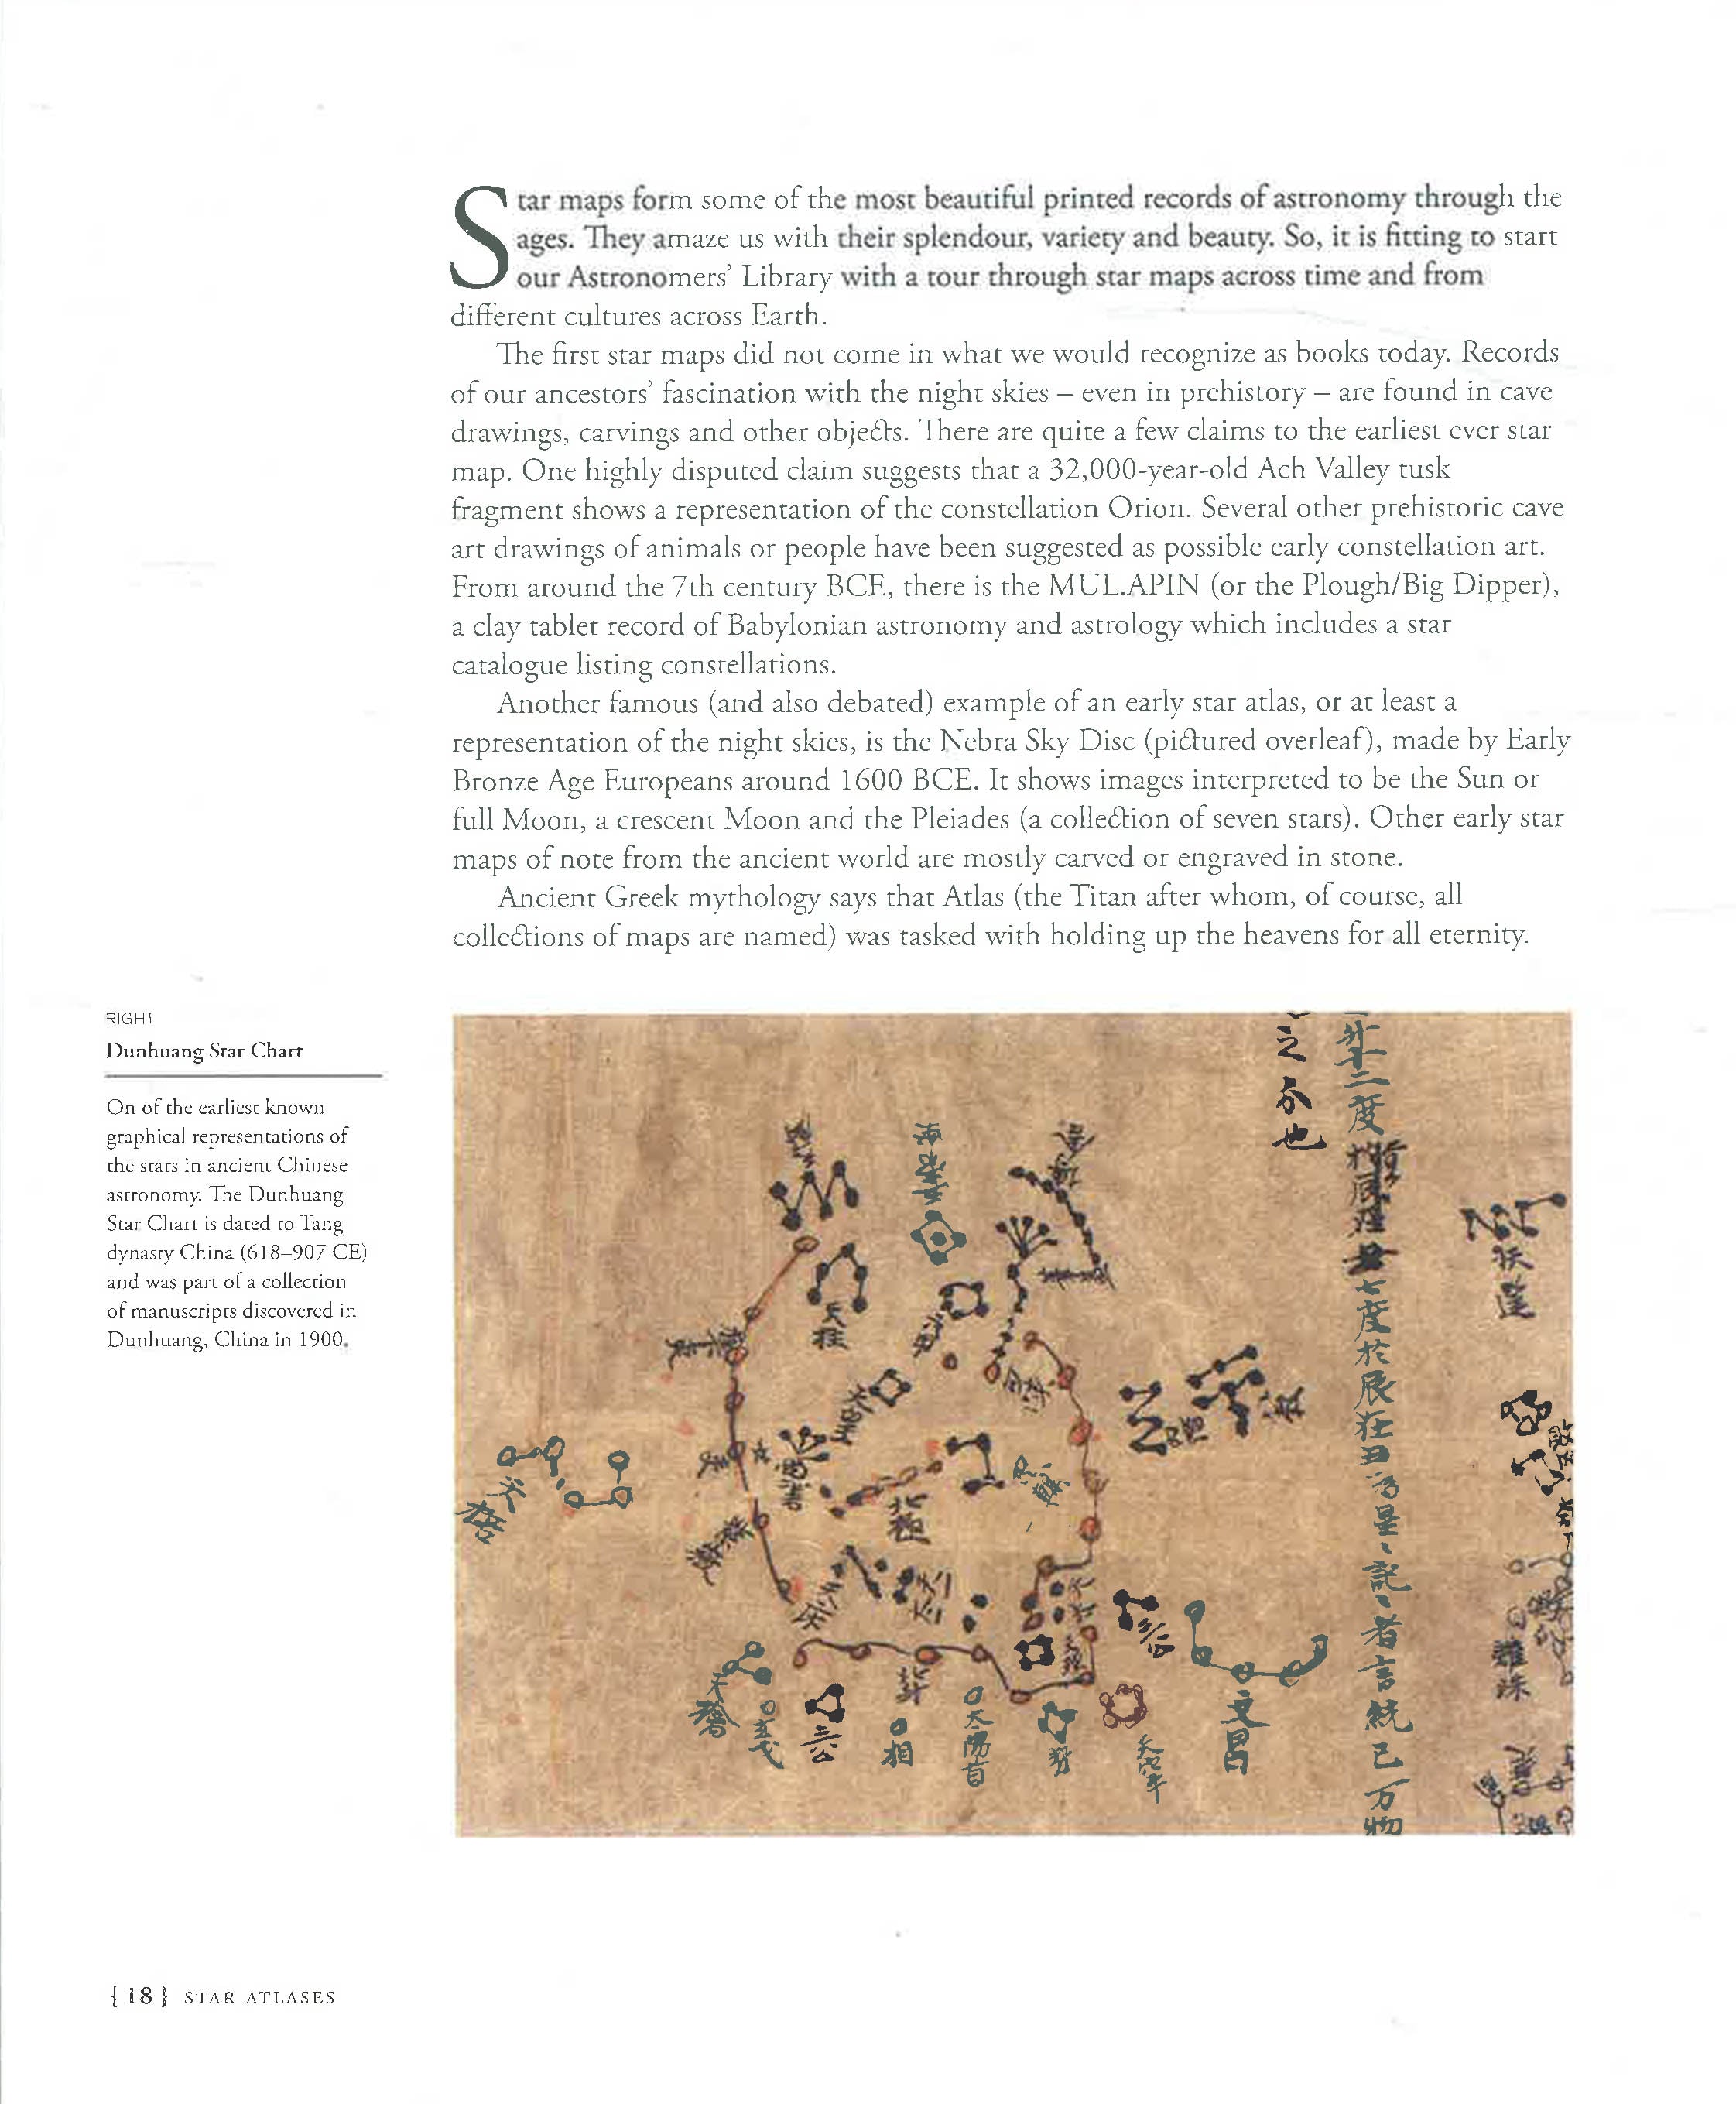 Star maps form some of the most beautiful printed records of astronomy through the
ages. They amaze us with their splendour, variety and beauty. So, it is fitting to start
our Astronomers’ Library with a tour through star maps across time and from
different cultures across Earth.
The first star maps did not come in what we would recognize as books today. Records
of our ancestors’ fascination with the night skies – even in prehistory – are found in cave
drawings, carvings and other objects. There are quite a few claims to the earliest ever star
map. One highly disputed claim suggests that a 32,000-year-old Ach Valley tusk
fragment shows a representation of the constellation Orion. Several other prehistoric cave
art drawings of animals or people have been suggested as possible early constellation art.
From around the 7th century BCE, there is the MUL.APIN (or the Plough/Big Dipper),
a clay tablet record of Babylonian astronomy and astrology which includes a star
catalogue listing constellations.
Another famous (and also debated) example of an early star atlas, or at least a
representation of the night skies, is the Nebra Sky Disc (pictured overleaf), made by Early
Bronze Age Europeans around 1600 BCE. It shows images interpreted to be the Sun or
full Moon, a crescent Moon and the Pleiades (a collection of seven stars). Other early star
maps of note from the ancient world are mostly carved or engraved in stone.
Ancient Greek mythology says that Atlas (the Titan after whom, of course, all
collections of maps are named) was tasked with holding up the heavens for all eternity.
RIGHT
Dunhuang Star Chart
On of the earliest known
graphical representations of
the stars in ancient Chinese
astronomy. The Dunhuang
Star Chart is dated to Tang
dynasty China (618–907 CE)
and was part of a collection
of manuscripts discovered in
Dunhuang, China in 1900.
天柱
北極
北斗
三公
相
太陽首
勢
文昌
{ 18 } STAR ATLASES